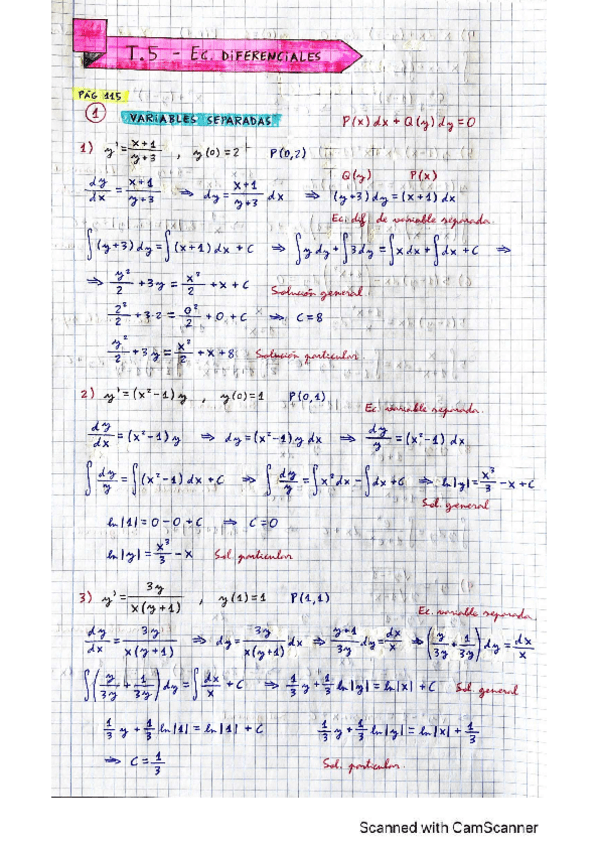 T.5 - EC. DIFERENCIALES
PÁG 115
① VARIABLES SEPARADAS P(x) dx + Q(y) dy = 0
1) y' = (x+1)/(y+3) , y(0) = 2 P(0,2)
Q(y) P(x)
dy/dx = (x+1)/(y+3) ⇒ dy = (x+1)/(y+3) dx ⇒ (y+3) dy = (x+1) dx
Ec. dif. de variable separada.
∫(y+3) dy = ∫(x+1) dx + C ⇒ ∫y dy + ∫3 dy = ∫x dx + ∫dx + C ⇒
⇒ y²/2 + 3y = x²/2 + x + C Solución general
2²/2 + 3·2 = 0²/2 + 0 + C ⇒ C = 8
y²/2 + 3y = x²/2 + x + 8 Solución particular.
2) y' = (x²-1) y , y(0) = 1 P(0,1)
Ec. variable separada.
dy/dx = (x²-1) y ⇒ dy = (x²-1) y dx ⇒ dy/y = (x²-1) dx
∫dy/y = ∫(x²-1) dx + C ⇒ ∫dy/y = ∫x² dx - ∫dx + C ⇒ ln|y| = x³/3 - x + C
Sol. general
ln|1| = 0 - 0 + C ⇒ C = 0
ln|y| = x³/3 - x Sol. particular
3) y' = 3y/(x(y+1)) , y(1) = 1 P(1,1)
Ec. variable separada.
dy/dx = 3y/(x(y+1)) ⇒ dy = 3y/(x(y+1)) dx ⇒ (y+1)/3y dy = dx/x ⇒ (y/3y + 1/3y) dy = dx/x
∫(y/3y + 1/3y) dy = ∫dx/x + C ⇒ 1/3 y + 1/3 ln|y| = ln|x| + C Sol. general
1/3 y + 1/3 ln|1| = ln|1| + C 1/3 y + 1/3 ln|y| = ln|x| + 1/3
⇒ C = 1/3 Sol. particular.
Scanned with CamScanner